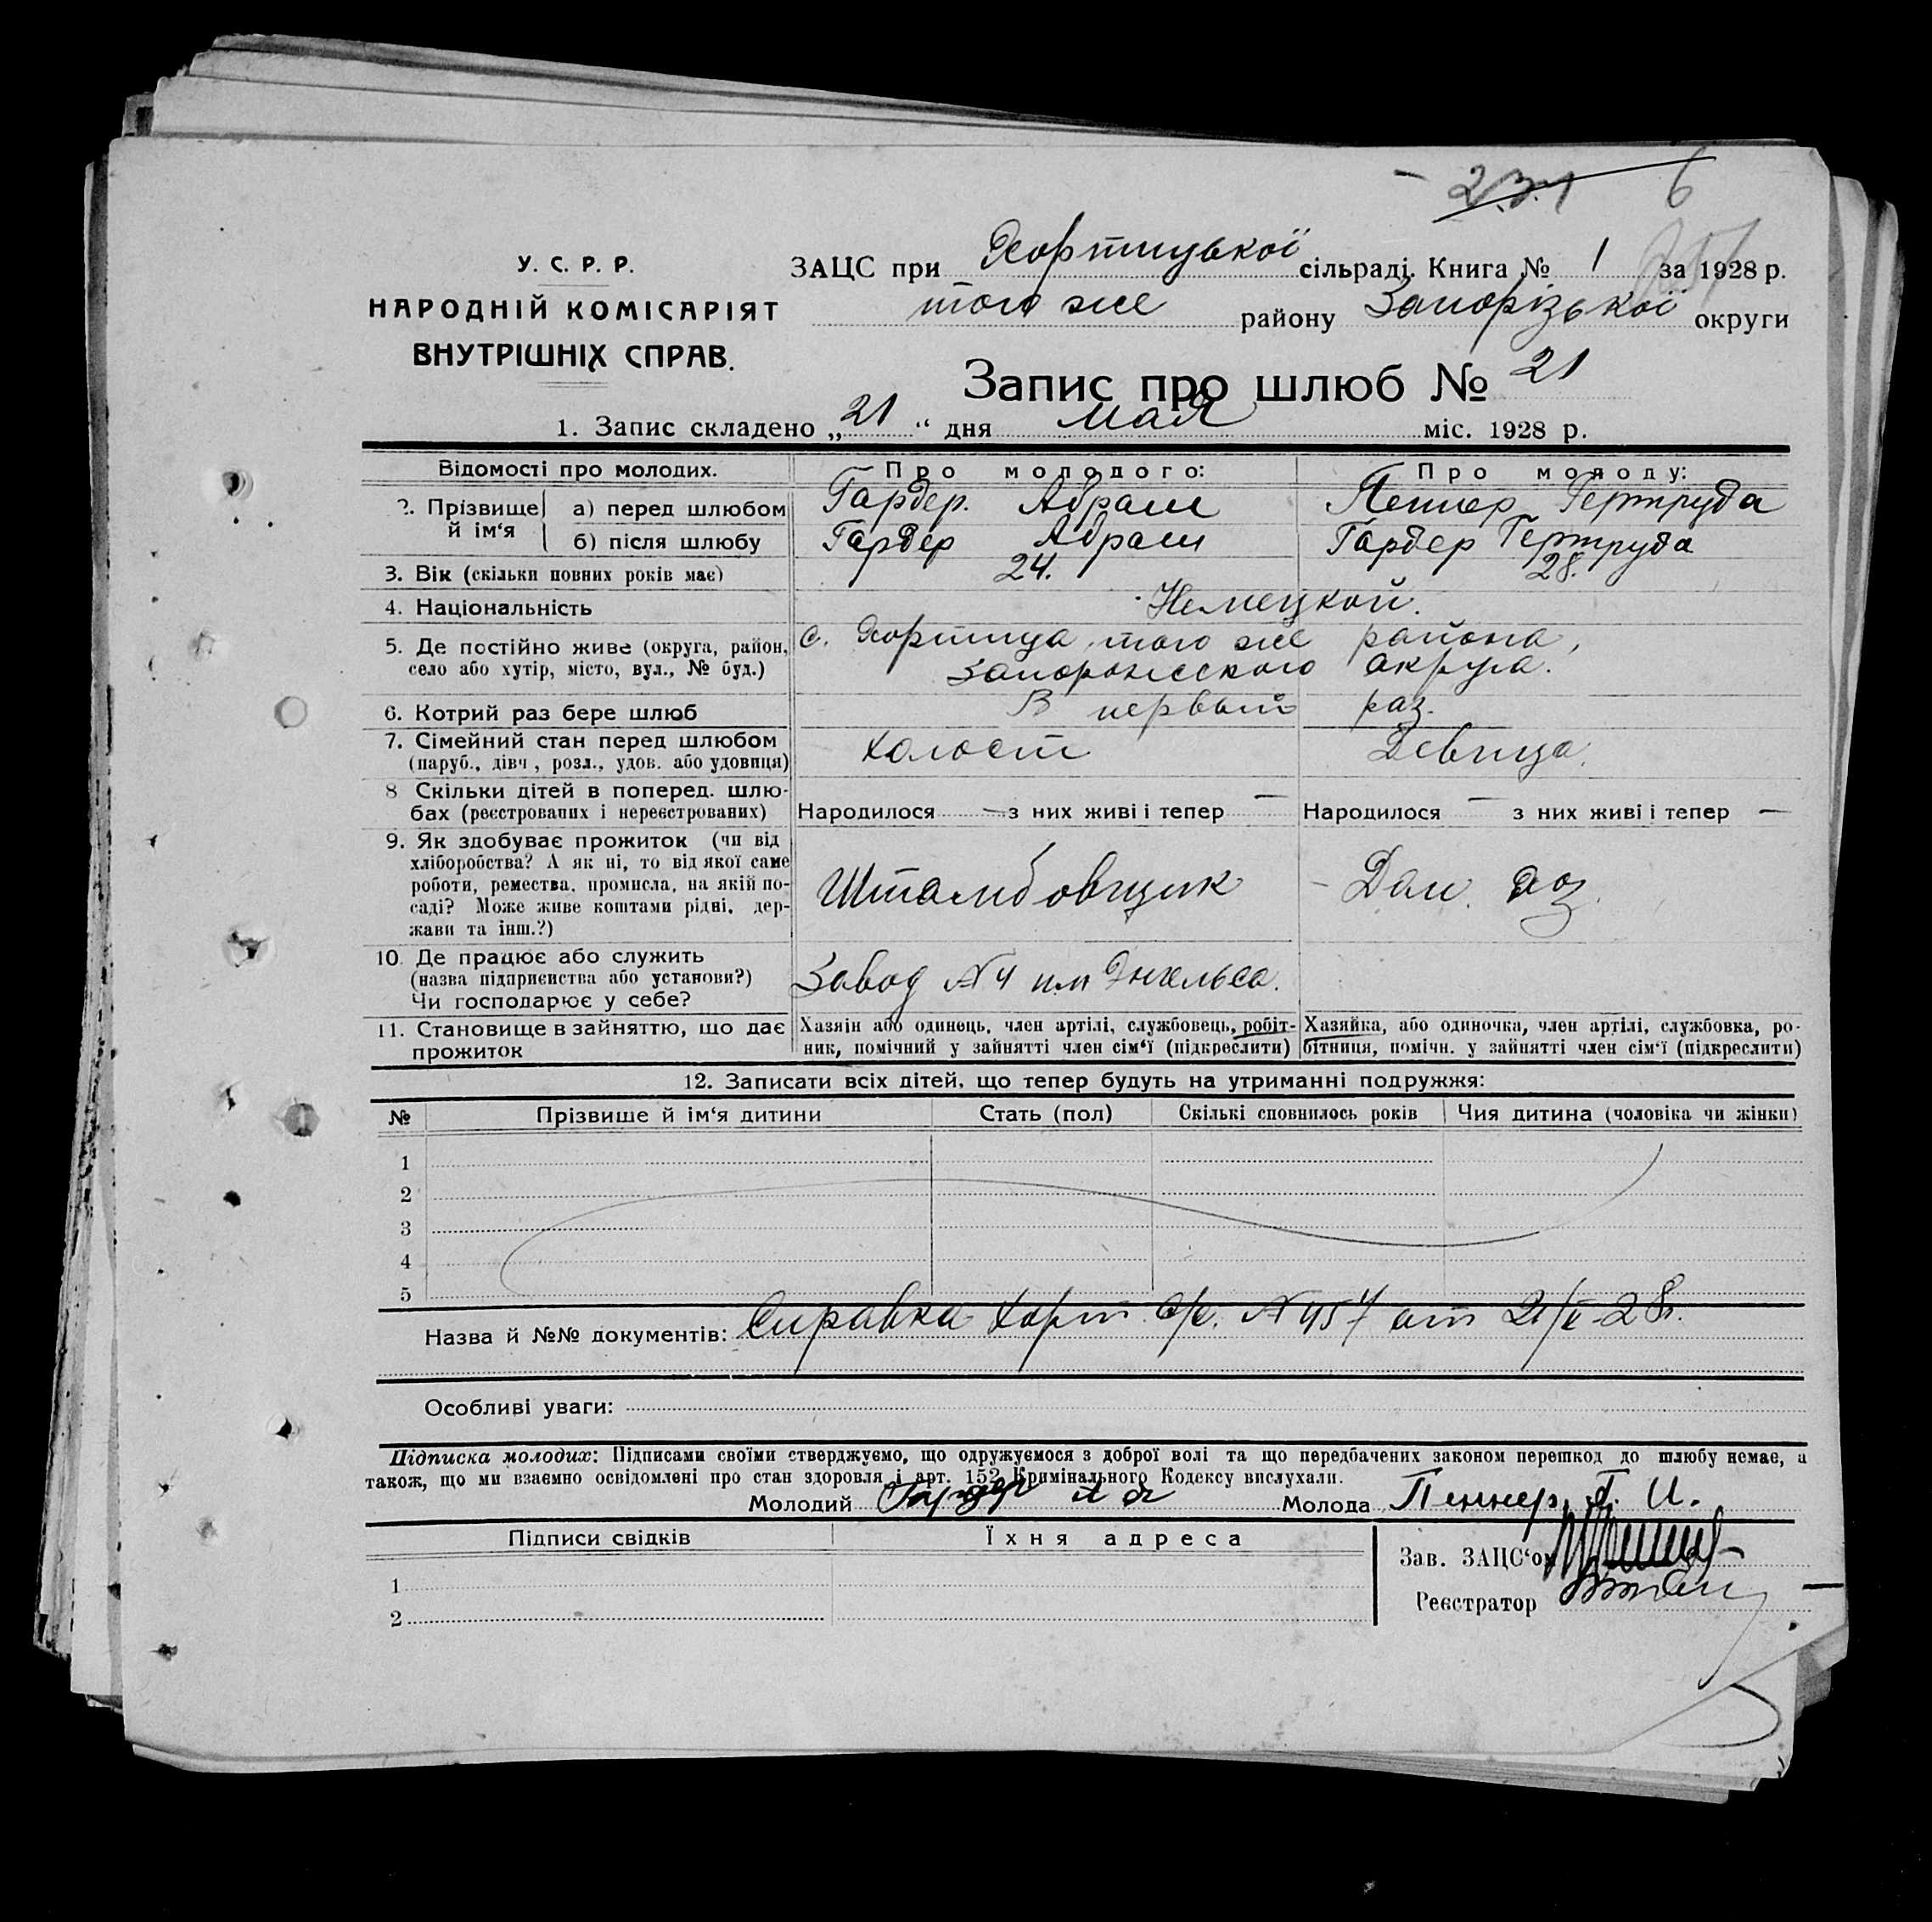 2.3.1 6
У. С. Р. Р.
НАРОДНІЙ КОМІСАРІЯТ
ВНУТРІШНІХ СПРАВ.
ЗАЦС при Хортицької сільраді. Книга № 1 за 1928 р.
того же району Запорізької округи
Запис про шлюб № 21
1. Запис складено „21“ дня мая міс. 1928 р.
Відомості про молодих. Про молодого: Про молоду:
2. Прізвище й ім‘я
а) перед шлюбом Гардер. Абрам Пеннер Гертруда
б) після шлюбу Гардер Абрам Гардер Гертруда
3. Вік (скільки повних років має) 24. 28.
4. Національність Немецкой.
5. Де постійно живе (округа, район, с. Хортица, того же района,
село або хутір, місто, вул., № буд.) Запорожского округа.
6. Котрий раз бере шлюб В первый раз.
7. Сімейний стан перед шлюбом Холост Девица.
(паруб., дівч., розл., удов. або удовиця)
8 Скільки дітей в поперед. шлю-
бах (реєстрованих і нереєстрованих) Народилося — з них живі і тепер — Народилося — з них живі і тепер —
9. Як здобуває прожиток (чи від
хліборобства? А як ні, то від якої саме
роботи, ремества, промисла, на якій по- Штамбовщик - Дом. хоз.
саді? Може живе коштами рідні, дер-
жави та інш.?)
10. Де працює або служить
(назва підприємства або установи?) Завод №4 им Энгельса.
Чи господарює у себе?
11. Становище в зайняттю, що дає Хазяін або одинець, член артілі, службовець, робіт- Хазяйка, або одиночка, член артілі, службовка, ро-
прожиток ник, помічний у зайнятті член сім‘ї (підкреслити) бітниця, помічн. у зайнятті член сім‘ї (підкреслити)
12. Записати всіх дітей, що тепер будуть на утриманні подружжя:
№ Прізвище й ім‘я дитини Стать (пол) Скількі сповнилось років Чия дитина (чоловіка чи жінки)
1
2
3
4
5
Назва й №№ документів: Справка Хорт. с/с. № 457 от 21/V-28г.
Особливі уваги:
Підписка молодих: Підписами своїми стверджуємо, що одружуємося з доброї волі та що передбачених законом перешкод до шлюбу немає, а
також, що ми взаємно освідомлені про стан здоровля і арт. 152 Кримінального Кодексу вислухали.
Молодий Гардер А Молода Пеннер, Г. И.
Підписи свідків Їхня адреса
Зав. ЗАЦС‘ом
1
Реєстратор
2